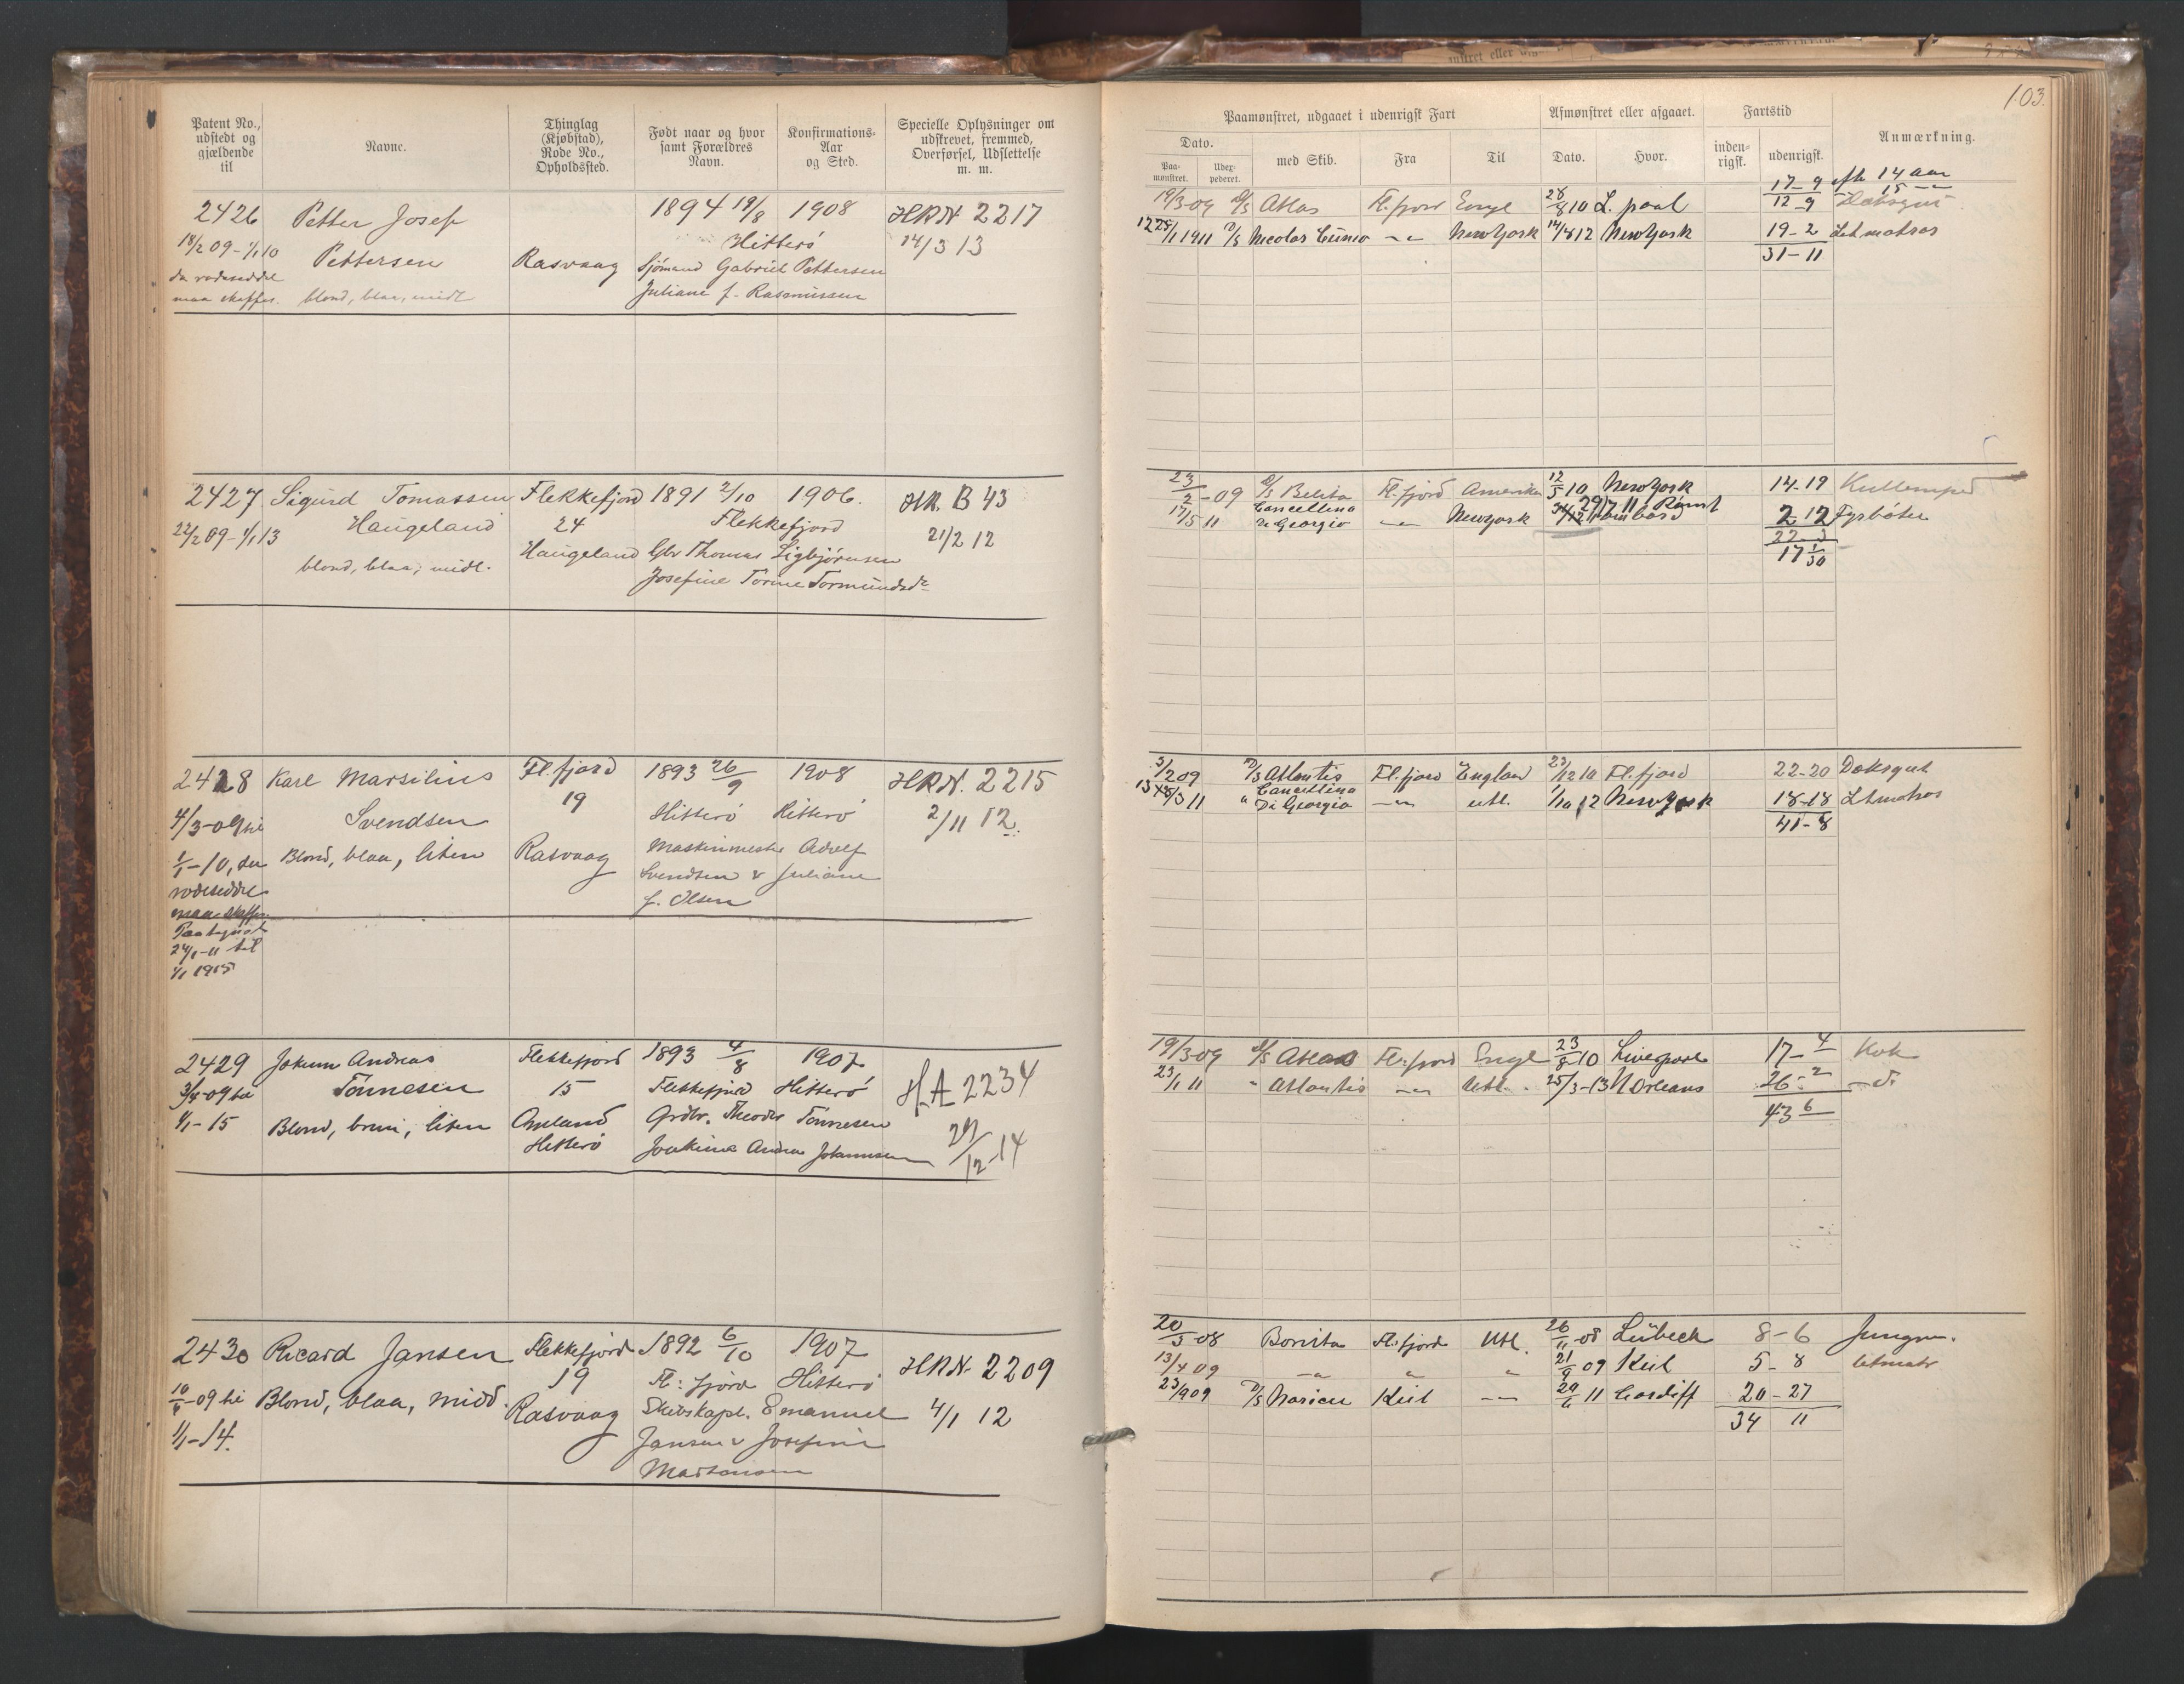 Patent No., udstedt og gjældende til
Navne.
Thinglag (Kjøbstad), Rode No., Opholdssted.
Født naar og hvor samt Forældres Navn.
Konfirmations-Aar og Sted.
Specielle Oplysninger om udskrevet, fremmed, Overførsel, Udslettelse m. m.
2426 Petter Josef 1894 19/8 1908 HRN 2217
18/2 09 - 1/1 10 Pettersen Rasvaag Hitterö 14/3 13
da rodeseddel Sjömand Gabriel Pettersen
maa skaffes. blond, blaa, midt Juliane f. Rasmussen
2427 Sigurd Tomassen Flekkefjord 1891 2/10 1906. HR. B 43
22/2 09 - 1/1 13 Haugeland 24 Flekkefjord 21/2 12
blond, blaa, midl. Haugeland Gbr Thomas Sigbjörnsen
Josefine Torine Tormundsdr
2428 Karl Marsilius Fl.fjord 1893 26/9 1908 HRN. 2215
4/3-09 til Svendsen 19 Hitterö Hitterö 2/11 12.
1/1-10, da Blond, blaa, liten Rasvaag Maskinmester Adolf
rodeseddel Svendsen & Juliane
maa skaffes f. Olsen
Paategnet
24/1-11 til
1/1 1915
2429 Jokum Andreas Flekkefjord 1893 4/8 1907 H.A 2234
3/4-09 til Tönnesen 15 Flekkefjord Hitterö
1/1-15 Blond, brun, liten Aneland Grdbr. Theodor Tönnesen 29/12-14
Hitterö Joakime Andrea Johannesen
2430 Ricard Jansen Flekkefjord 1892 6/10 1907 HRN 2209
10/4-09 til Blond, blaa, midd. 19 Fl: fjord Hitterö
1/1-14. Rasvaag Skibskapt. Emanuel 4/1 12
Jansen & Josefine
Martensen
103.
Paamønstret, udgaaet i udenrigsk Fart
Afmønstret eller afgaaet.
Fartstid
Anmærkning.
Dato.
Paa-mønstret. Udex-pederet.
med Skib. Fra Til Dato. Hvor. inden-rigsk. udenrigsk.
17-9 efter 14 aar
15 - "
19/3-09 D/S Atlas Fl.fjord Engl 28/8 10 L.pool 12-9 Dæksgut
25/1 1911 D/S Nicolas Cuneo -"- New York 14/8 12 New York 19-2 Letmatros
31-11
23/2-09 D/S Belita Fl.fjord Amerika 12/5 10 New York 14-19 Kullemper
17/5 11 Cancellina Di Giorgio -"- New York 29/7 11 2-12 Fyrböter
17 1/30
3/2 09 D/S Atlantis Fl.fjord England 23/12 10 Fl.fjord 22-20 Dæksgut
18/3 11 " Cancellina Di Georgio -"- utl. 1/10 12 New York 18-18 Letmatros
41-8
19/3-09 D/S Atlas Fl.fjord Engl 23/8 10 Liverpool 17-4 Kok
23/1 11 " Atlantis -"- Utl. 25/3-13 N Orleans 26-2 -d-
43 6
20/3-08 Bonita Fl.fjord Utl. 26/11-08 Lübeck 8-6 Jungm.
13/4 09 -"- " " 21/9 09 Kiel 5-8 letmatr
23/9 09 D/S Marien Kiel -"- 29/6 11 Cardiff 20-27
34 11